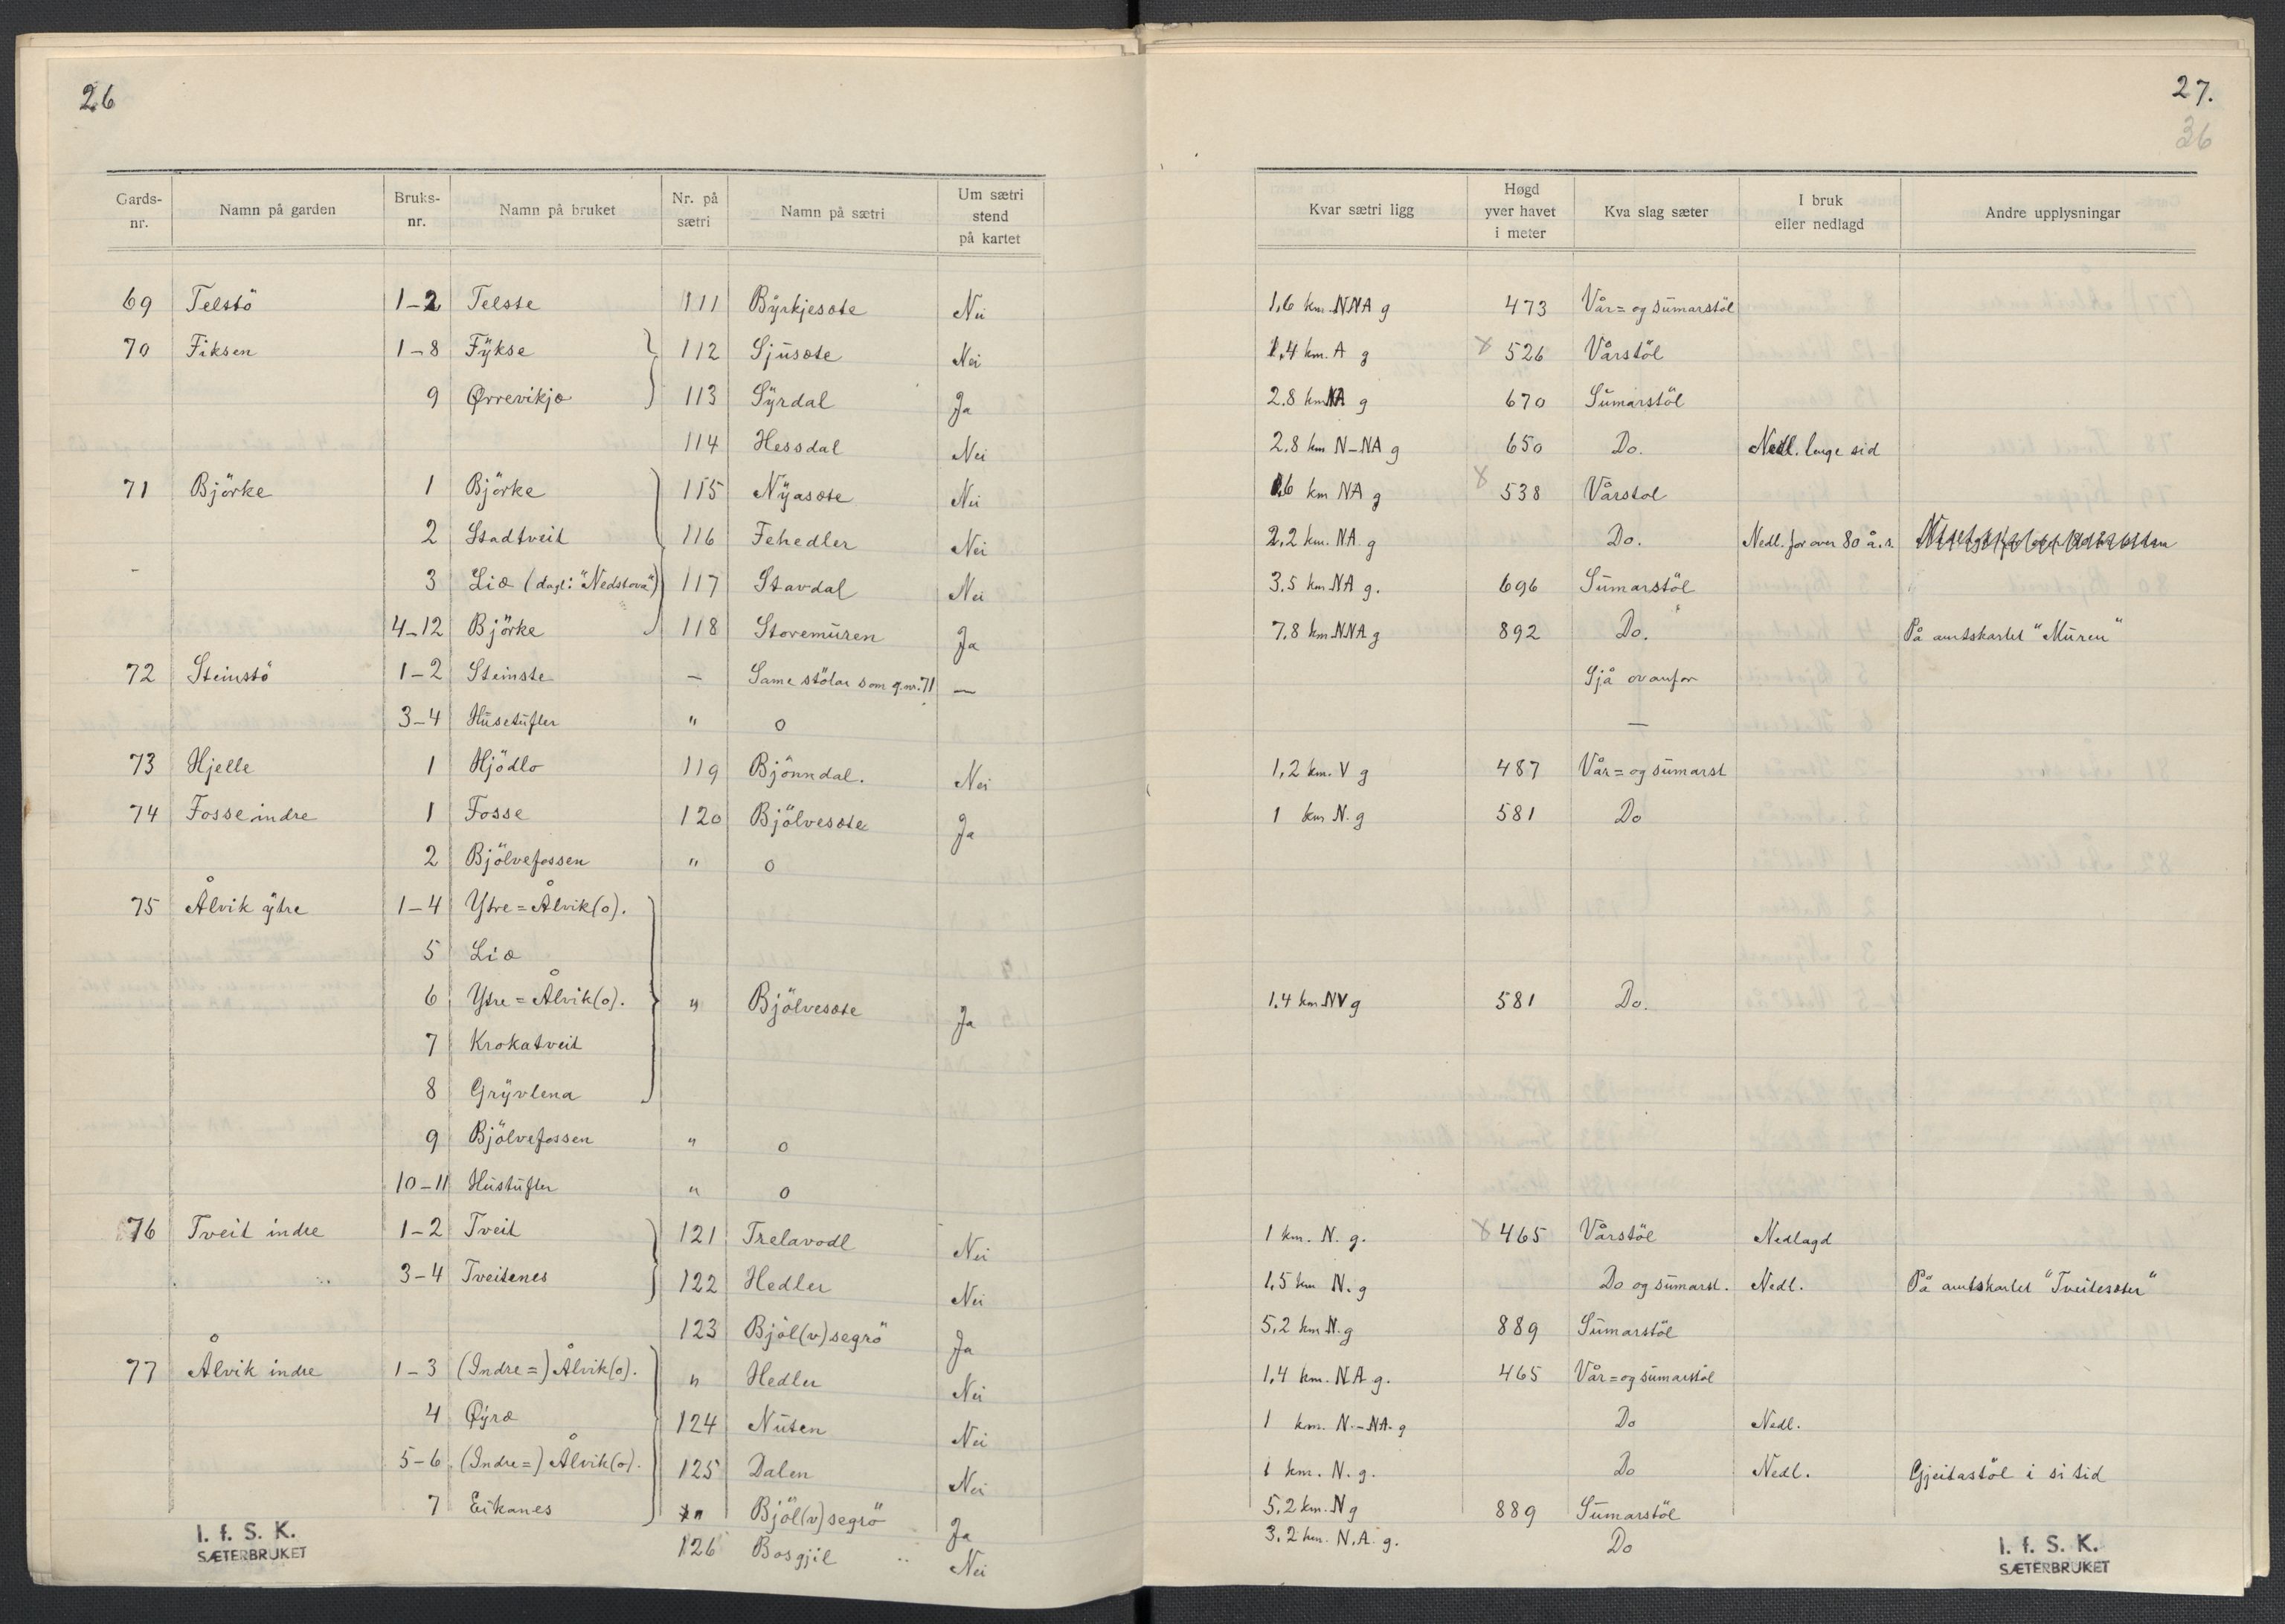 26
Gards-nr. Namn på garden Bruks-nr. Namn på bruket Nr. på sætri Namn på sætri Um sætri stend på kartet
69 Telstö 1-2 Telste 111 Byrkjesæte Nei
70 Fiksen 1-8 Fykse 112 Sjusæte Nei
9 Ørrevikjo 113 Syrdal Ja
114 Hessdal Nei
71 Björke 1 Björke 115 Nyasæte Nei
2 Stadtveit 116 Fehedler Nei
3 Lio (dagl: "Nedstova") 117 Stavdal Nei
4-12 Björke 118 Storemuren Ja
72 Steinstö 1-2 Steinste — Same stölar som g.nr. 71 —
3-4 Husetufter " o
73 Hjelle 1 Hjödlo 119 Bjönndal. Nei
74 Fosse indre 1 Fosse 120 Bjölvesæte Ja
2 Bjölvefossen " o
75 Ålvik ytre 1-4 Ytre=Ålvik(o).
5 Lio
6 Ytre=Ålvik(o). " Bjölvesæte Ja
7 Krokatveit
8 Gryvlena
9 Bjölvefossen " o
10-11 Hustufter " o
76 Tveit indre 1-2 Tveit 121 Trelavodl Nei
3-4 Tveitenes 122 Hedler Nei
123 Bjöl(v)segrö Ja
77 Ålvik indre 1-3 (Indre=) Ålvik(o). " Hedler Nei
4 Øyro 124 Nuten Nei
5-6 (Indre=) Ålvik(o). 125 Dalen Nei
7 Eikanes " Bjöl(v)segrö Ja
126 Bosgjil Nei
I. f. S. K.
SÆTERBRUKET
27.
36
Kvar sætri ligg Høgd yver havet i meter Kva slag sæter I bruk eller nedlagd Andre upplysningar
1,6 km. NNA g 473 Vår= og sumarstöl
1,4 km. A g x 526 Vårstöl
2.8 km NA g 670 Sumarstöl
2.8 km N-NA g 650 Do. Nedl. lenge sid
1,6 km NA g x 538 Vårstol
2.2 km. NA. g Do. Nedl. for over 80 å.s.
3.5 km NA g. 696 Sumarstöl
7.8 km. NNA g 892 Do. På amtskartet "Muren"
Sjå ovanfor
—
1,2 km. V g 487 Vår= og sumarst
1 km N. g 581 Do
1.4 km. NV g 581 Do.
1 km. N. g. x 465 Vårstöl Nedlagd
1,5 km N. g Do og sumarst. Nedl. På amtskartet "Tveitesæter"
5,2 km N. g 889 Sumarstöl
1,4 km. NA g. 465 Vår= og sumarstöl
1 km. N.-NA. g Do Nedl.
1 km. N. g. Do Nedl. Gjeitastöl i si tid
5,2 km. N g 889 Sumarstöl
3.2 km. N.A. g. Do
I. f. S. K.
SÆTERBRUKET